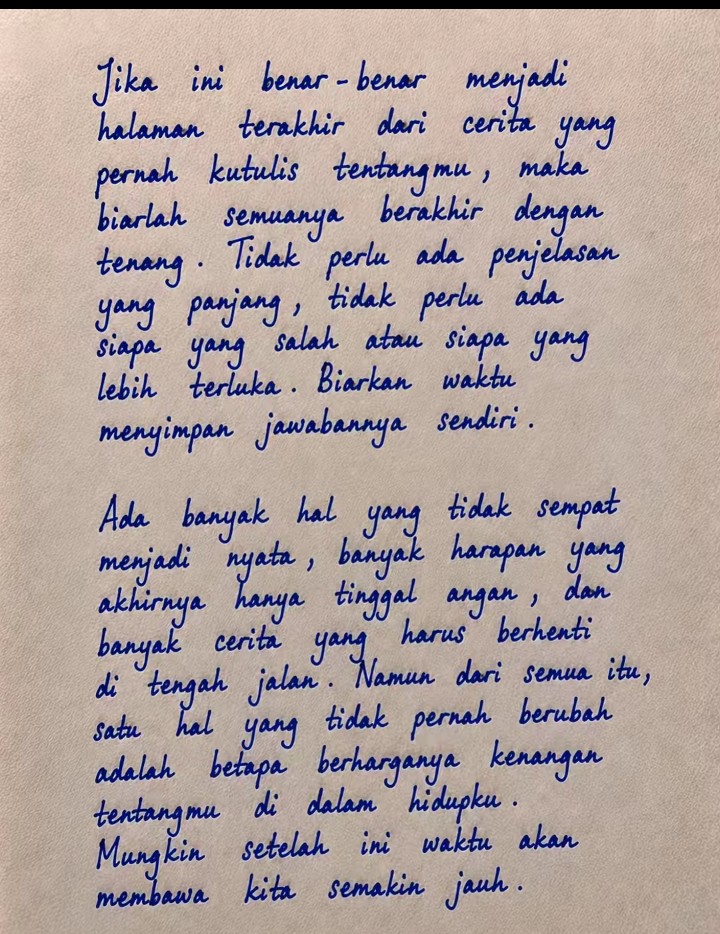 Jika ini benar-benar menjadi
halaman terakhir dari cerita yang
pernah kutulis tentangmu, maka
biarlah semuanya berakhir dengan
tenang. Tidak perlu ada penjelasan
yang panjang, tidak perlu ada
siapa yang salah atau siapa yang
lebih terluka. Biarkan waktu
menyimpan jawabannya sendiri.

Ada banyak hal yang tidak sempat
menjadi nyata, banyak harapan yang
akhirnya hanya tinggal angan, dan
banyak cerita yang harus berhenti
di tengah jalan. Namun dari semua itu,
satu hal yang tidak pernah berubah
adalah betapa berharganya kenangan
tentangmu di dalam hidupku.
Mungkin setelah ini waktu akan
membawa kita semakin jauh.